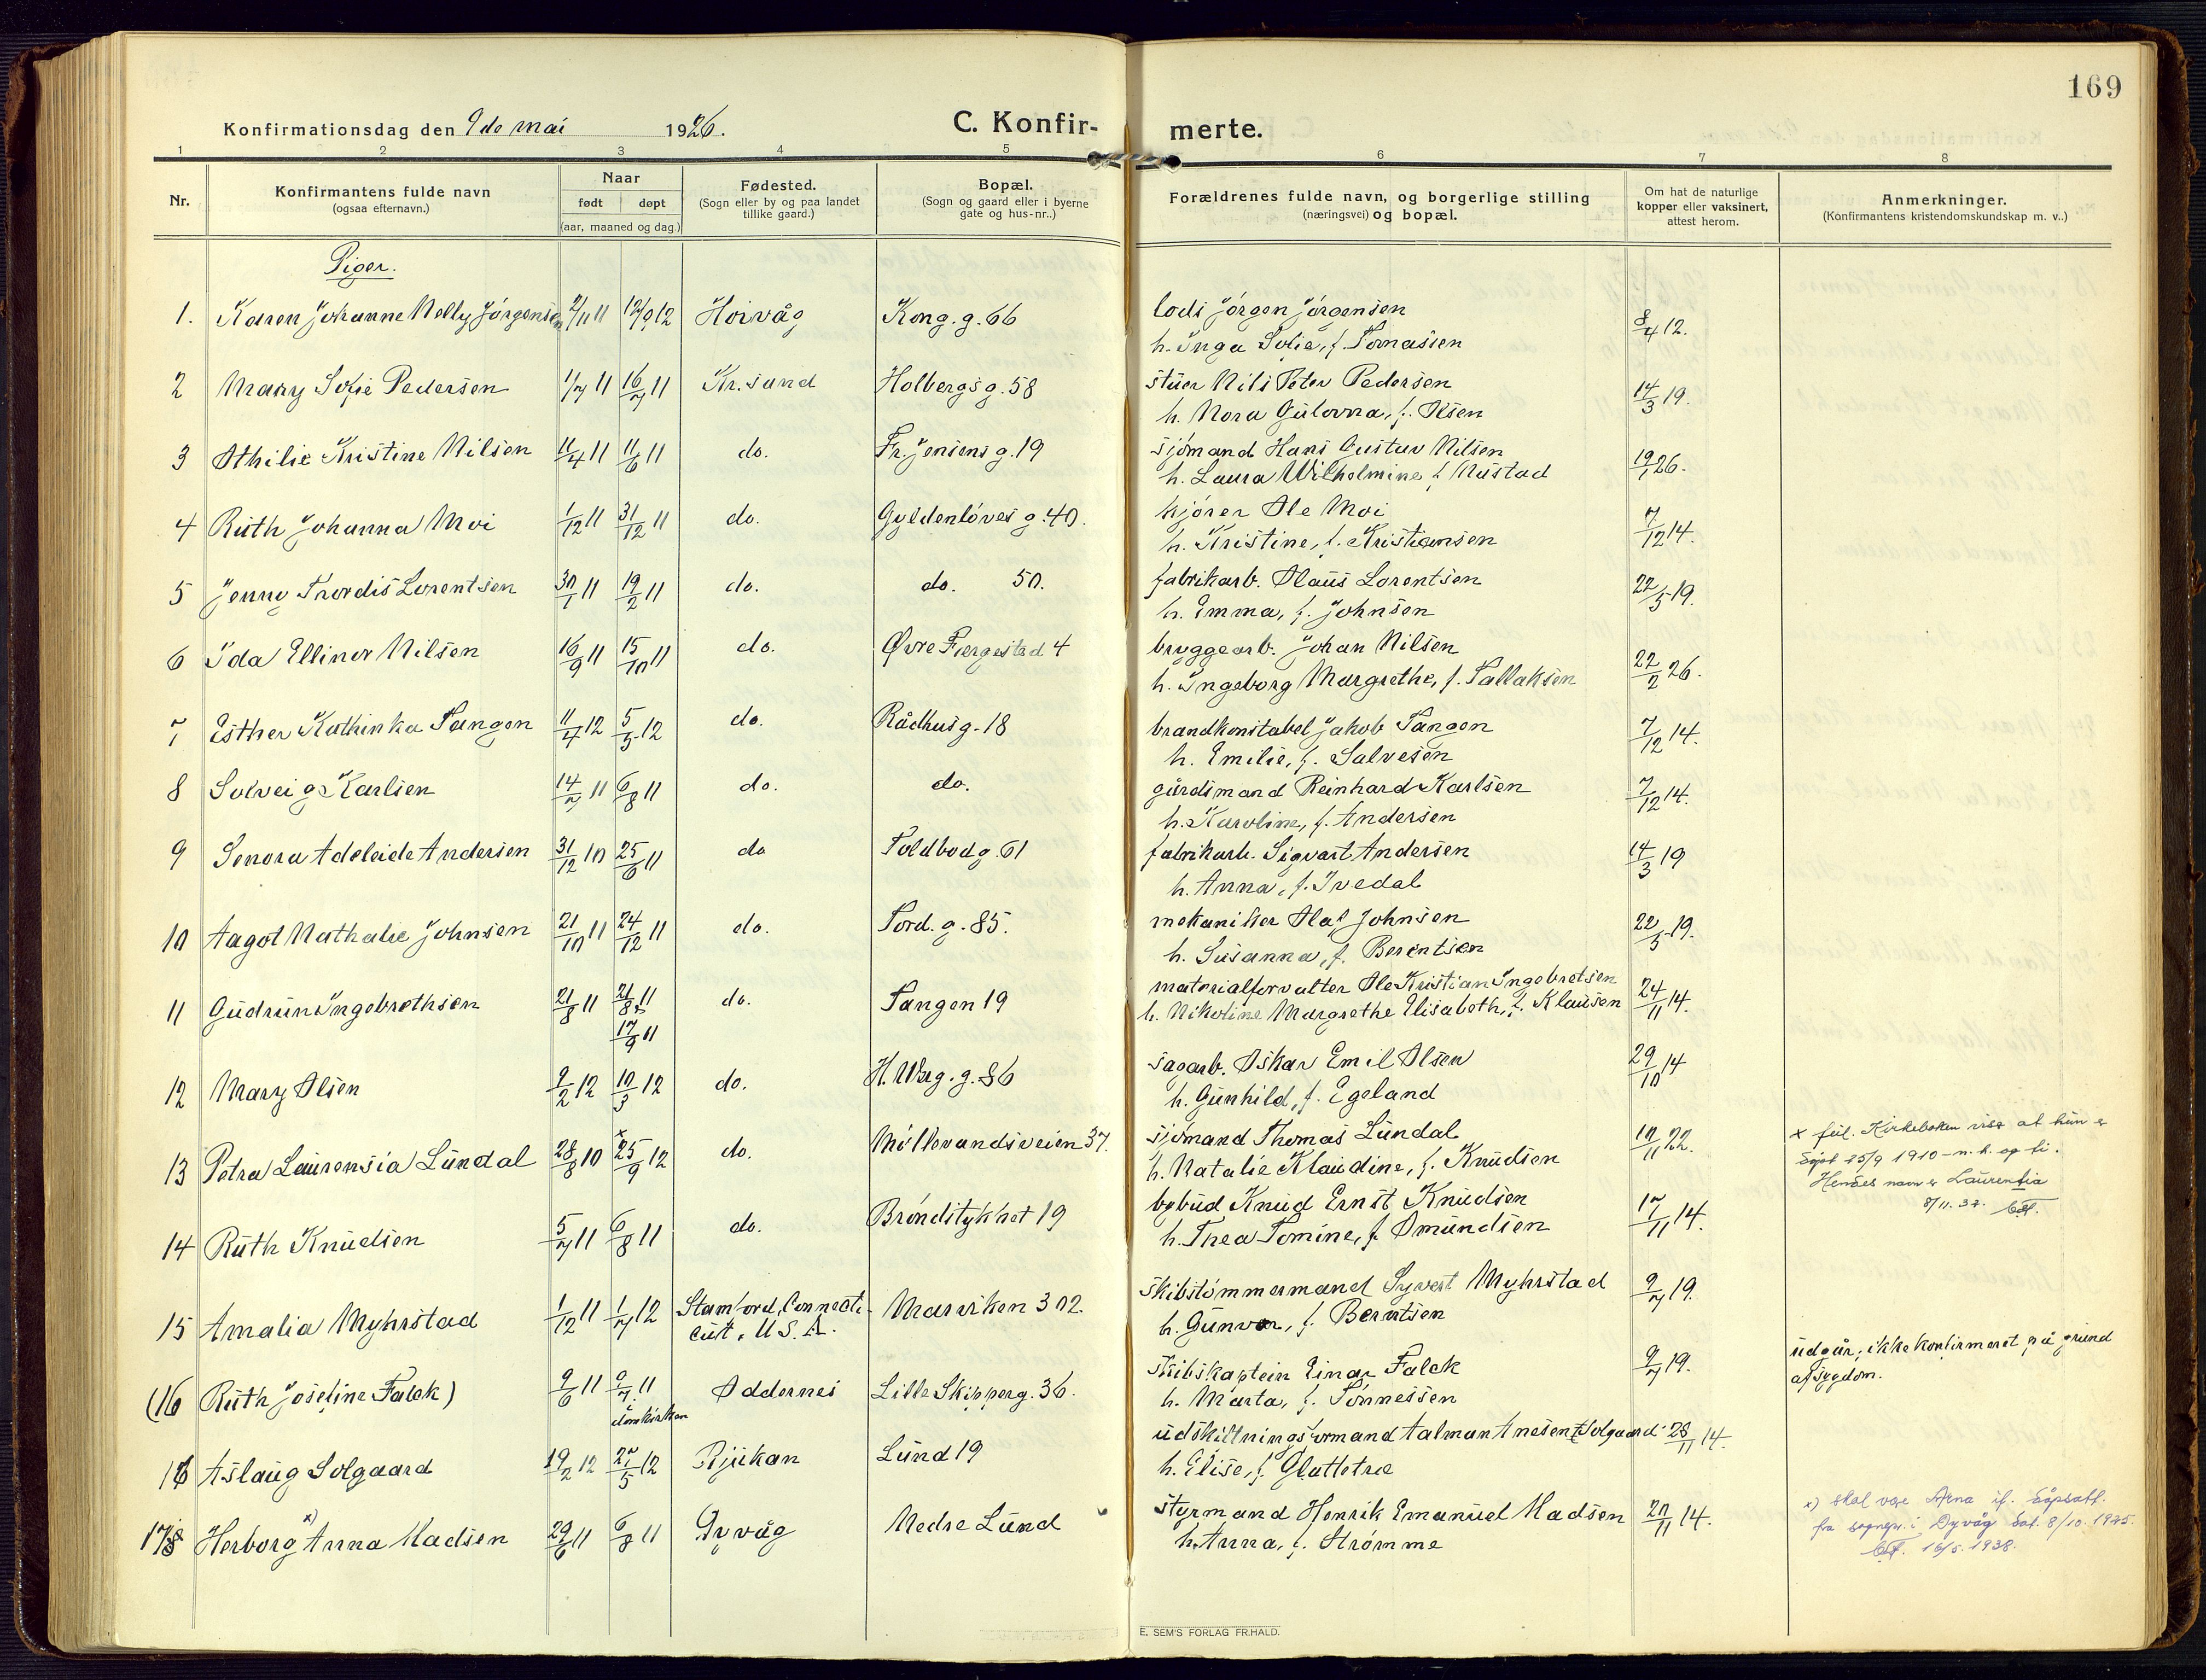 169
Konfirmationsdag den 9de mai 1926.
C. Konfir-merte.
1 2 3 4 5 6 7 8
Nr.
Konfirmantens fulde navn
(ogsaa efternavn.)
Naar
født døpt
(aar, maaned og dag.)
Fødested.
(Sogn eller by og paa landet
tillike gaard.)
Bopæl.
(Sogn og gaard eller i byerne
gate og hus-nr..)
Forældrenes fulde navn, og borgerlige stilling
(næringsvei) og bopæl.
Om hat de naturlige
kopper eller vaksinert,
attest herom.
Anmerkninger.
(Konfirmantens kristendomskundskap m. v..)
Piger.
1. Karen Johanne Nelly Jørgensen 12/9 12 Høivåg Kong.g. 66 lods Jørgen Jørgensen 8/4 12.
h. Inga Sofie, f. Tomassen
2 Mary Sofie Pedersen 1/7 11 16/7 11 Kr.sand Holbergsg. 58 stuer Nils Peter Pedersen 14/3 19.
h. Nora Gulovna, f. Olsen
3 Othilie Kristine Nilsen 11/4 11 11/6 11 do. Fr. Jensensg. 19 sjömand Hans Gustav Nilsen 19/1 26.
h. Laura Wilhelmine f. Mustad
4 Ruth Johanna Moi 1/12 11 31/12 11 do. Gyldenløvesg. 40. kjörer Ole Moi 7/12 14.
h. Kristine, f. Kristiensen
5 Jenny Thordis Lorentsen 30/1 11 19/2 11 do. do. 50. fabrikarb. Olaus Lorentsen 22/5 19.
h. Emma, f. Johnsen
6 Ida Ellinor Nilsen 16/9 11 15/10 11 do. Øvre Færgestad 4 bryggearb. Johan Nilsen 22/2 26.
h. Ingeborg Margrethe, f. Tallaksen
7 Esther Kathinka Tangen 11/4 12 5/5 12 do. Rådhusg. 18 brandkonstabel Jakob Tangen 7/12 14.
h. Emilie, f. Salvesen
8 Solveig Karlsen 14/7 11 6/8 11 do. do. gårdsmand Reinhard Karlsen 7/12 14.
h. Karoline, f. Andersen
9 Senora Adeleide Andersen 31/12 10 25/6 11 do Toldbodg. 61 fabrikarb. Sigvart Andersen 14/3 19
h. Anna, f. Ivedal
10 Aagot Nathalie Johnsen 21/10 11 24/12 11 do. Tord.g. 85. mekaniker Olaf Johnsen 22/5 19.
h. Susanna, f. Berentsen
11 Gudrun Ingebrethsen 21/8 11 17/9 11 do. Tangen 19 materialforvalter Ole Kristian Ingebretsen 24/11 14.
h. Nikoline Margrethe Elisabeth, f. Klausen
12 Mary Olsen 9/2 12 10/3 12 do. H. Werg.g. 86 sagarb. Oskar Emil Olsen 29/10 14
h. Gunhild, f. Egeland
13 Petra Laurensia Lundal 28/8 10 x 25/9 12 do. Möllevandsveien 37. sjömand Thomas Lundal 10/11 22.
h. Natalie Klaudine, f. Knudsen
x feil. Kirkeboken viser at hun er
døpt 25/9 1910 – n.k. op ti.
Hendes navn er Laurentia
8/11. 37.
14 Ruth Knudsen 5/7 11 6/8 11 do. Bröndstykket 19 bybud Knud Ernst Knudsen 17/11 14.
h. Thea Tomine, f. Omundsen
15 Amalia Myhrstad 1/12 11 1/7 12 Stamford, Connecti-
cut, U.S.A. Marviken 302. skibstömmermand Syvert Myhrstad 9/7 19.
h. Gunvor, f. Berntsen
(16 Ruth Josefine Falck) 9/6 11 9/7 11 i domkirken Oddernes Lille Skipperg. 36. skibskaptein Einar Falck 9/7 19.
h. Marta, f. Tönnessen
udgår; ikke konfirmeret på grund
af sygdom.
16 Aslaug Solgaard 19/2 12 27/5 12 Rjukan Lund 19 udskiftningsformand Aalman Anesen Solgaard 28/11 14.
h. Elise, f. Glattetræ
17 Herborg x) Anna Madsen 29/6 11 6/8 11 Dyvåg Nedre Lund styrmand Henrik Emanuel Madsen 20/11 14.
h. Anna, f. Strømme
x) skal være Arna if. dåpsatt.
fra sognepr. i Dyvåg dat. 8/10. 1925.
16/5. 1938.
E. SEM'S FORLAG FR.HALD.